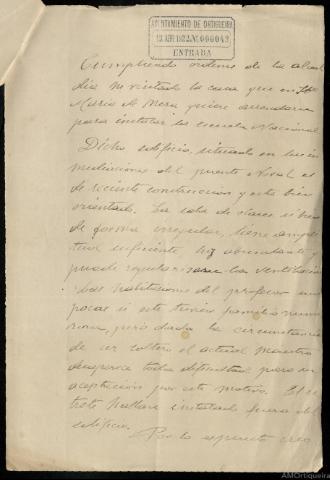 AYUNTAMIENTO DE ORTIGUEIRA
000043
ENTRADA
Cumpliendo ordenes de la alcal
dia he visitado la casa que en Sta
Maria de Mera quiere
para instalar la escuela Nacional
Dicho edificio, situado en las in
mediaciones del puente Nival es
de reciente construccion y está bien
orientado. La sala de clases si bien
de forma irregular, tiene ampli
tud suficiente luz abundante y
puede regularizarse la ventilacion
Las habitaciones del profesor un
pocas si este tuviera familia nume
rosa, pero dada la circunstancia
de ser soltero el actual Maestro
desaparece toda dificultad para su
aceptación por este motivo. El re
trete hallase instalado fuera del
edificio.
Por lo expuesto creo
AMOrtigueira